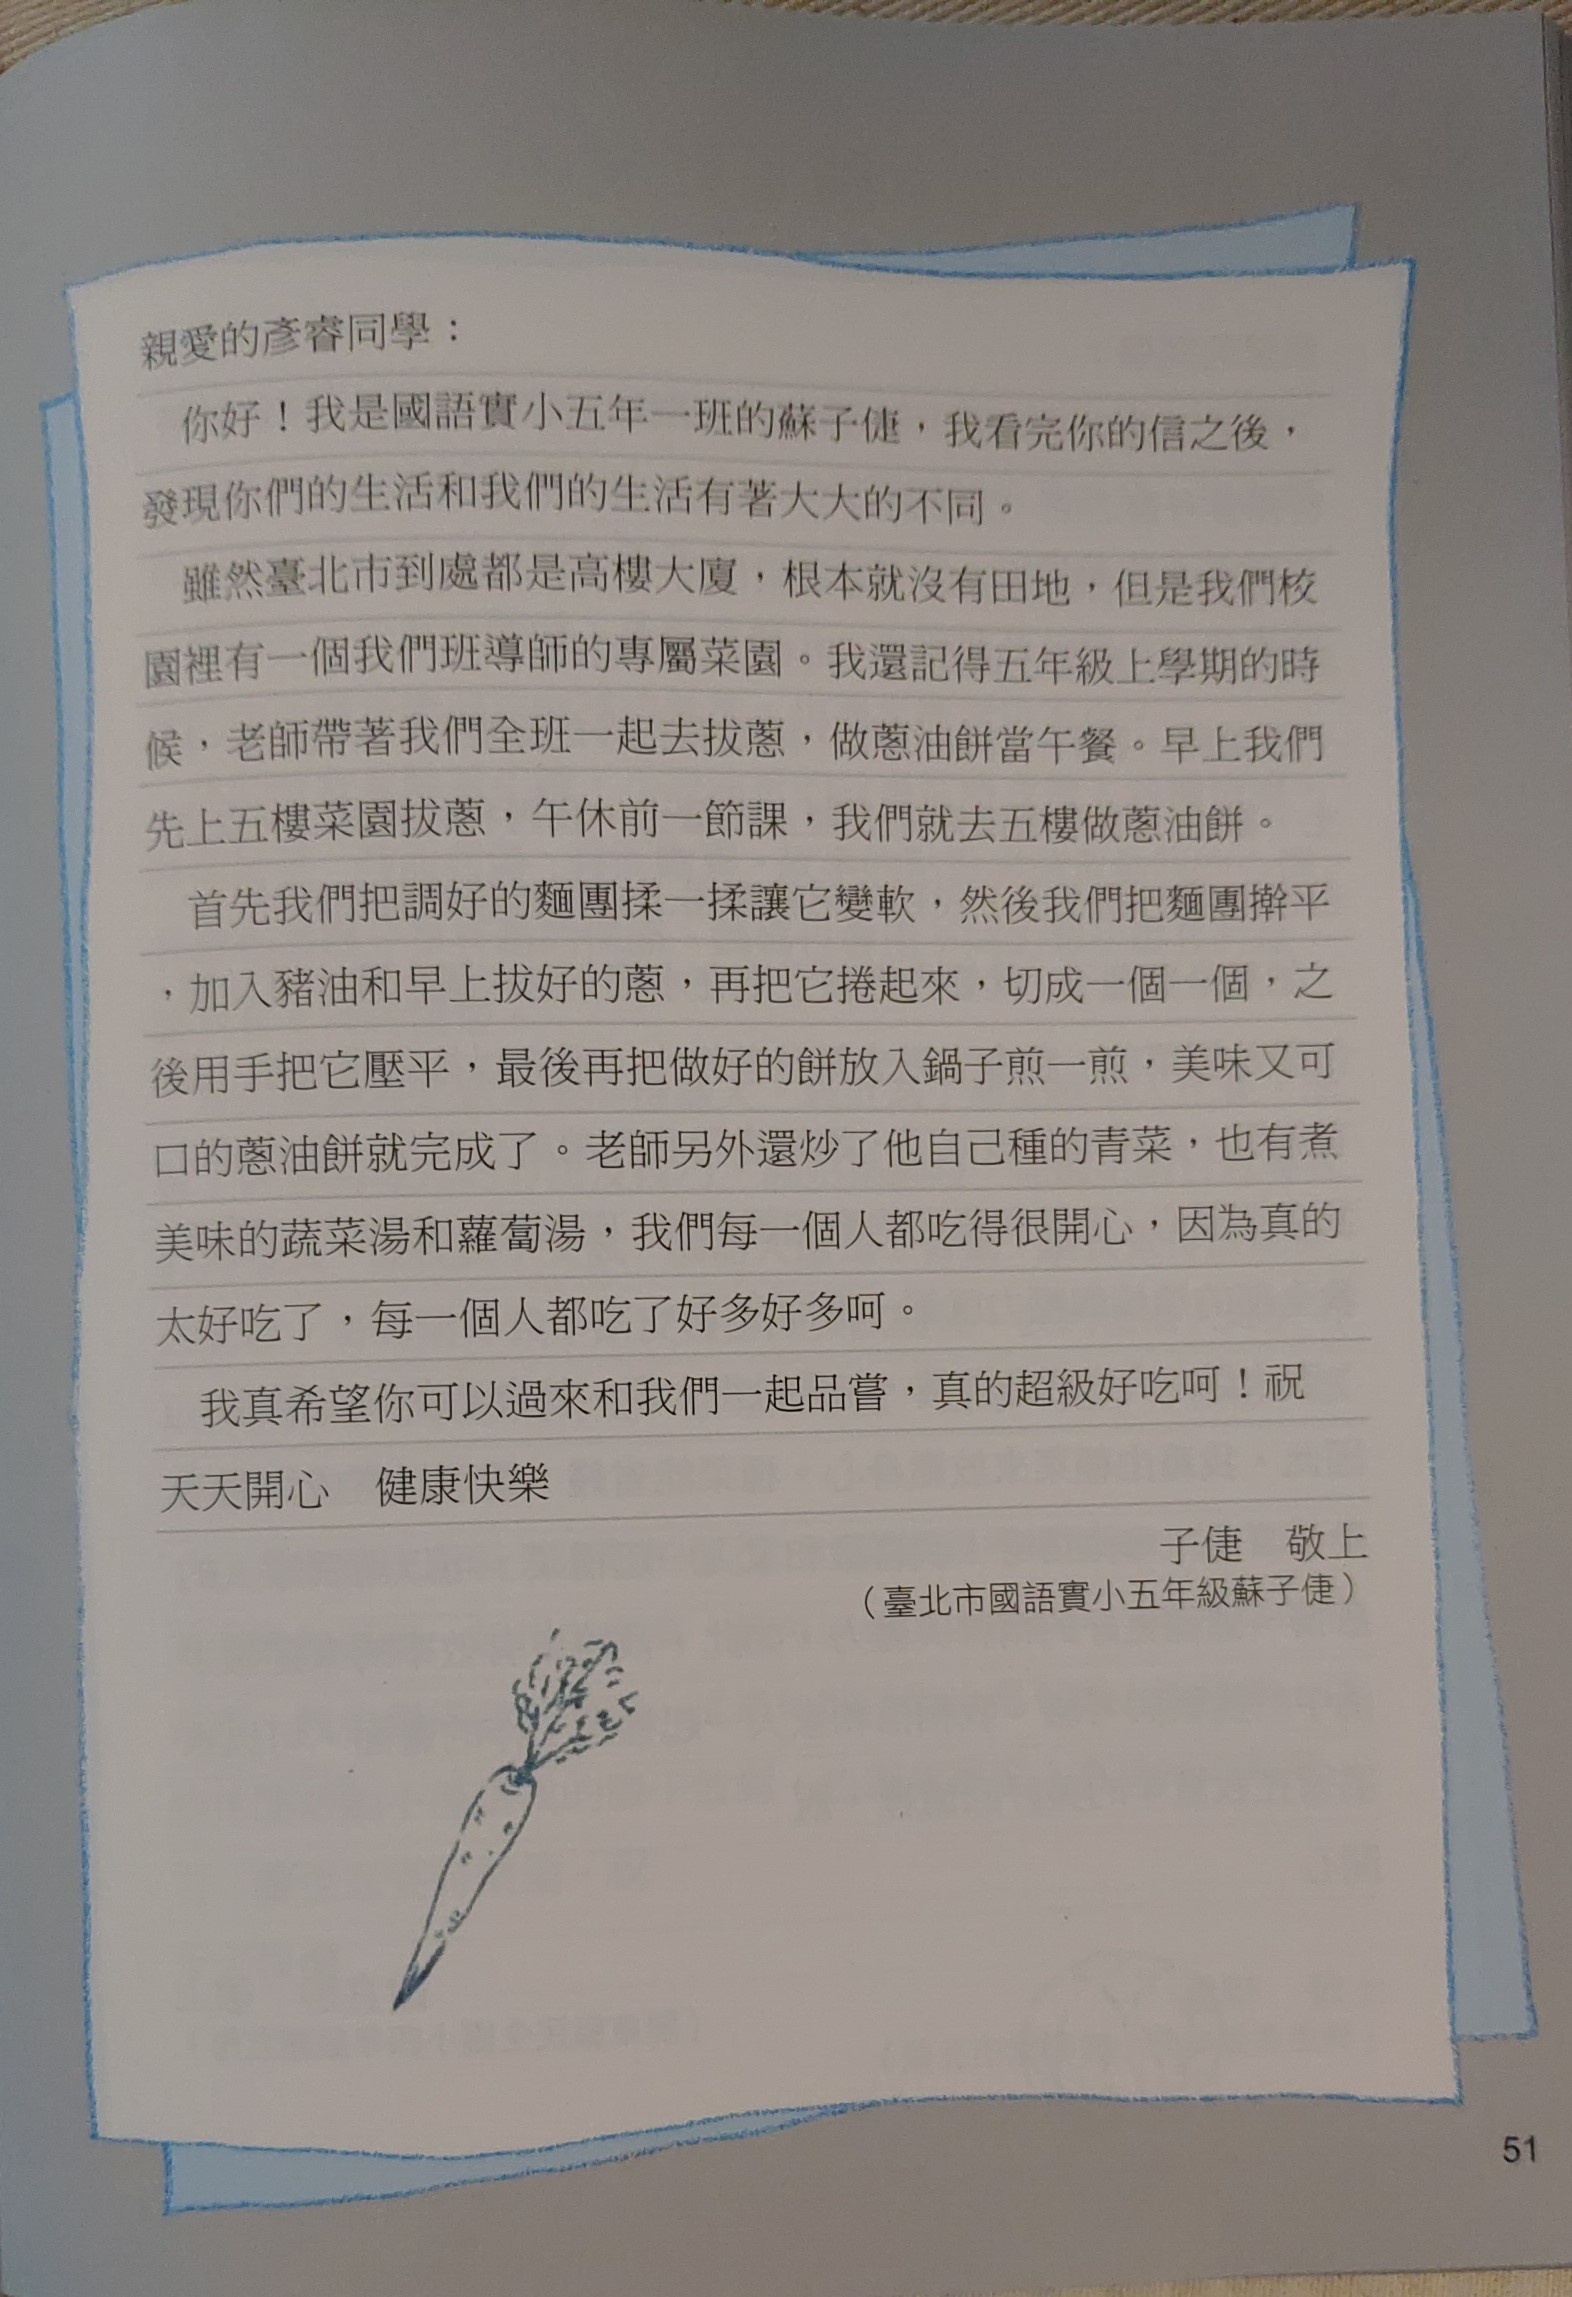 親愛的彥睿同學：
你好！我是國語實小五年一班的蘇子倢，我看完你的信之後，
發現你們的生活和我們的生活有著大大的不同。
雖然臺北市到處都是高樓大廈，根本就沒有田地，但是我們校
園裡有一個我們班導師的專屬菜園。我還記得五年級上學期的時
候，老師帶著我們全班一起去拔蔥，做蔥油餅當午餐。早上我們
先上五樓菜園拔蔥，午休前一節課，我們就去五樓做蔥油餅。
首先我們把調好的麵團揉一揉讓它變軟，然後我們把麵團擀平
，加入豬油和早上拔好的蔥，再把它捲起來，切成一個一個，之
後用手把它壓平，最後再把做好的餅放入鍋子煎一煎，美味又可
口的蔥油餅就完成了。老師另外還炒了他自己種的青菜，也有煮
美味的蔬菜湯和蘿蔔湯，我們每一個人都吃得很開心，因為真的
太好吃了，每一個人都吃了好多好多呵。
我真希望你可以過來和我們一起品嘗，真的超級好吃呵！祝
天天開心　健康快樂
子倢　敬上
（臺北市國語實小五年級蘇子倢）
51